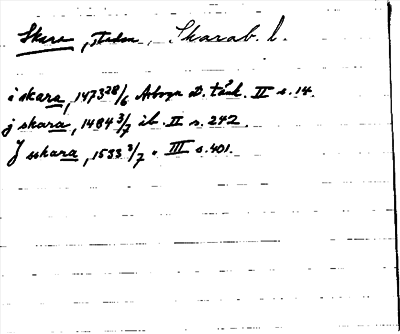 Skara, staden, Skarab. l.
i skara, 1473 28/6 Arboga S. tänk. II s. 14.
j skara, 1484 3/7 ib. II s. 242.
J sskara, 1533 3/7 " III s. 401.